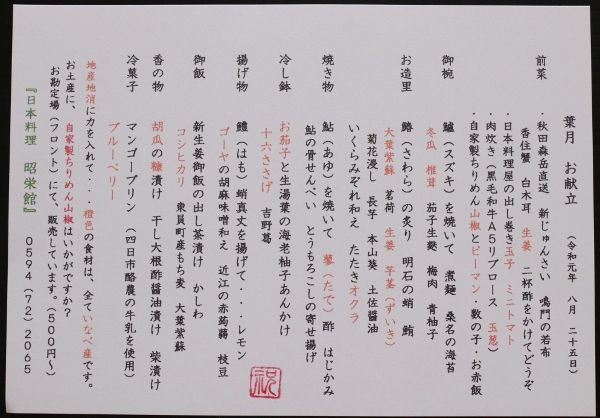 葉月　お献立　（令和元年　八月　二十五日）
前菜　・秋田森岳直送　新じゅんさい　鳴門の若布
香住蟹　白木耳　生姜　二杯酢をかけてどうぞ
・日本料理屋の出し巻き玉子　ミニトマト
・肉炊き（黒毛和牛A5リブロース　玉葱）
・自家製ちりめん山椒とピーマン・数の子・お赤飯
御椀　鱸（スズキ）を焼いて　煮麺　桑名の海苔
冬瓜　椎茸　茄子生麩　梅肉　青柚子
お造里　鰆（さわら）の炙り　明石の蛸　鮪
大葉紫蘇　茗荷　生姜　芋茎（ずいき）
菊花浸し　長芋　本山葵　土佐醤油
いくらみぞれ和え　たたきオクラ
焼き物　鮎（あゆ）を焼いて　蓼（たで）酢　はじかみ
鮎の骨せんべい　とうもろこしの寄せ揚げ
冷し鉢　お茄子と生湯葉の海老柚子あんかけ
十六ささげ　吉野葛
揚げ物　鱧（はも）蛸真丈を揚げて・・・レモン
ゴーヤの胡麻味噌和え　近江の赤蒟蒻　枝豆
御飯　新生姜御飯の出し茶漬け　かしわ
コシヒカリ　東員町産もち麦　大葉紫蘇
香の物　胡瓜の糠漬け　干し大根酢醤油漬け　柴漬け
冷菓子　マンゴープリン　（四日市酪農の牛乳を使用）
ブルーベリー
地産地消に力を入れて・・・橙色の食材は、全ていなべ産です。
お土産に、自家製ちりめん山椒はいかがですか？
お勘定場（フロント）にて、販売しています。（500円～）
『日本料理　昭栄館』　0594（72）2065
祝